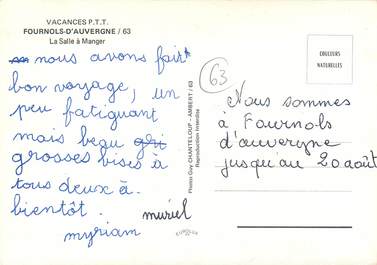 VACANCES P.T.T.
FOURNOLS-D'AUVERGNE / 63
La Salle à Manger
nous avons fait
bon voyage, un
peu fatiguant
mais beau
grosses bises à
tous deux à
bientôt.
muriel
myriam
Photos Guy CHANTELOUP - AMBERT / 63
Reproduction Interdite
COULEURS
NATURELLES
63
Nous sommes
à Fournols
d'auvergne
jusqu'au 20 août